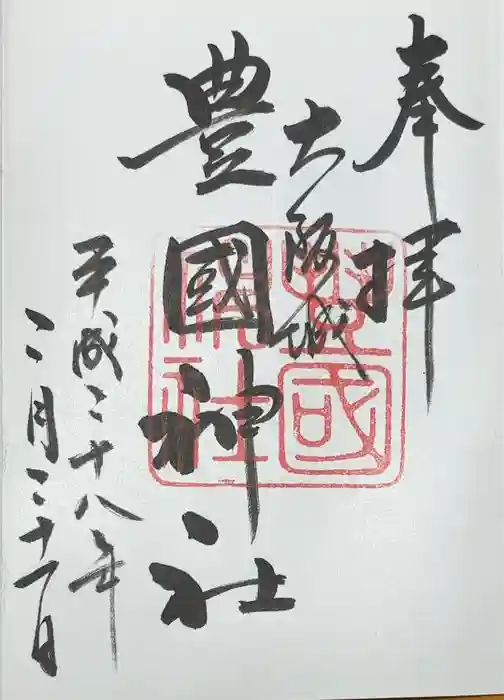 奉拝
大阪城
豊國神社
平成二十八年
二月二十一日
豊國神社